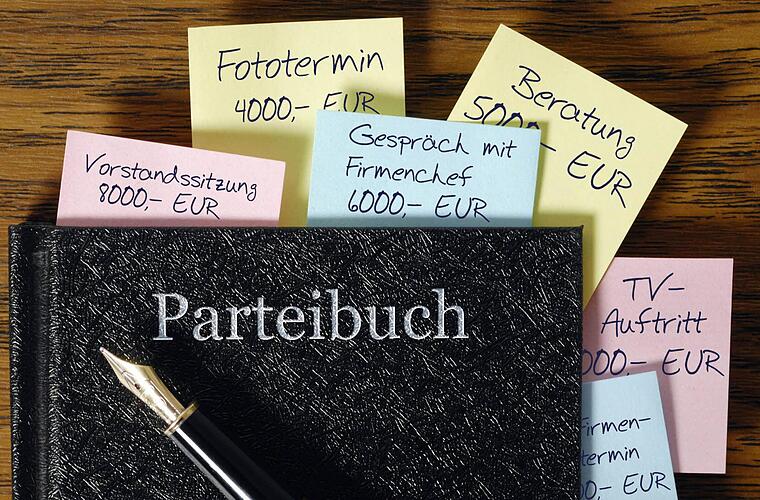 Fototermin
4000,- EUR
Beratung
5000,- EUR
Vorstandssitzung
8000,- EUR
Gespräch mit
Firmenchef
6000,- EUR
Parteibuch
TV-
Auftritt
000,- EUR
Firmen-
termin
00,- EUR